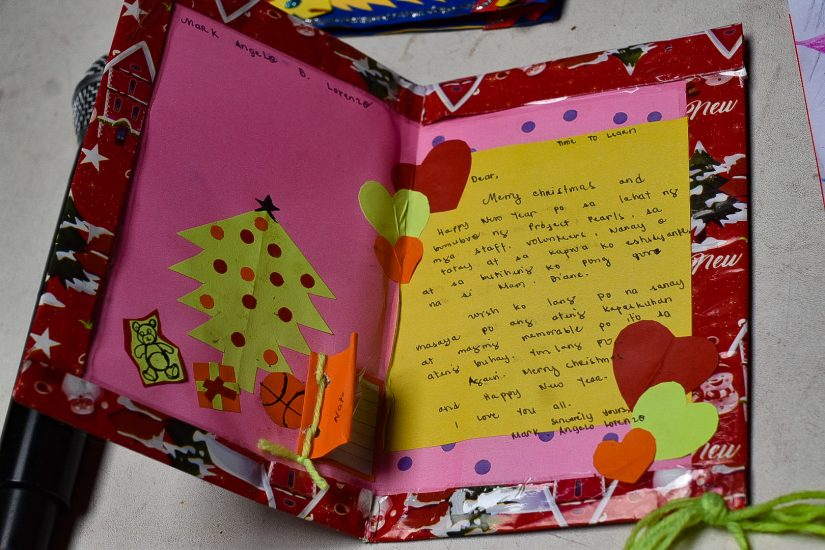 Mark Angelo B. Lorenzo
Time to Learn
Dear,
Merry christmas and
Happy New Year po sa lahat ng
bumubuo ng Project Pearls, sa
mga staff, volunteers, Nanay o
tatay at sa kapwa ko estudyante
at sa butihing ko pong guro
na si Mam. Diane.
Wish ko lang po na sanay
masaya po ang ating kapaskuhan
at maging memorable po ito sa
ating buhay. Yon lang po
Again. Merry Christmas
and Happy New Year.
I Love You all.
Sincerily Yours,
Mark Angelo Lorenzo
New
New
New